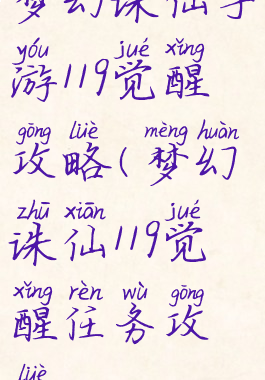 梦幻诛仙手
yóu jué xǐng
游119觉醒
gōng lüè mèng huàn
攻略(梦幻
zhū xiān jué
诛仙119觉
xǐng rèn wù gōng
醒任务攻
lüè